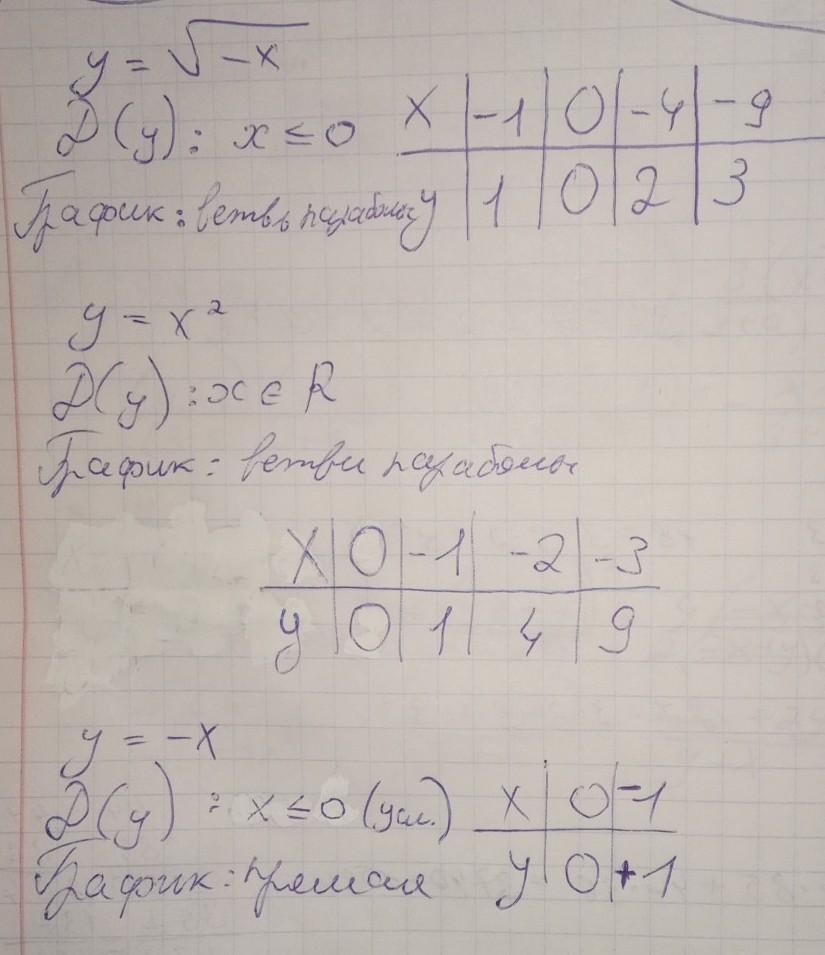 y = √-x
D(y): x ≤ 0
x | -1 | 0 | -4 | -9
График: ветвь параболы
y | 1 | 0 | 2 | 3
y = x²
D(y): x ∈ R
График: ветви параболы
x | 0 | -1 | -2 | -3
y | 0 | 1 | 4 | 9
y = -x
D(y): x ≤ 0 (усл.)
x | 0 | -1
График: прямая
y | 0 | +1